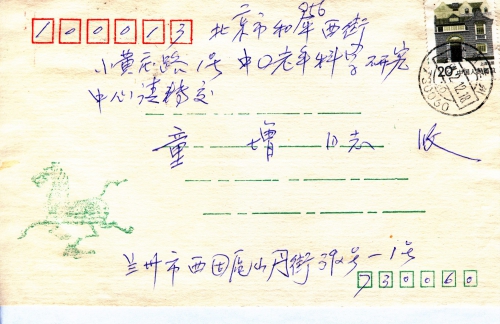 956
100013 北京市和平西街
小黄庄路1号 中口老年科学研究
中心请转交
童增同志 收
20分 中国人民邮政
兰州市西固区山丹街392号-1号
730060